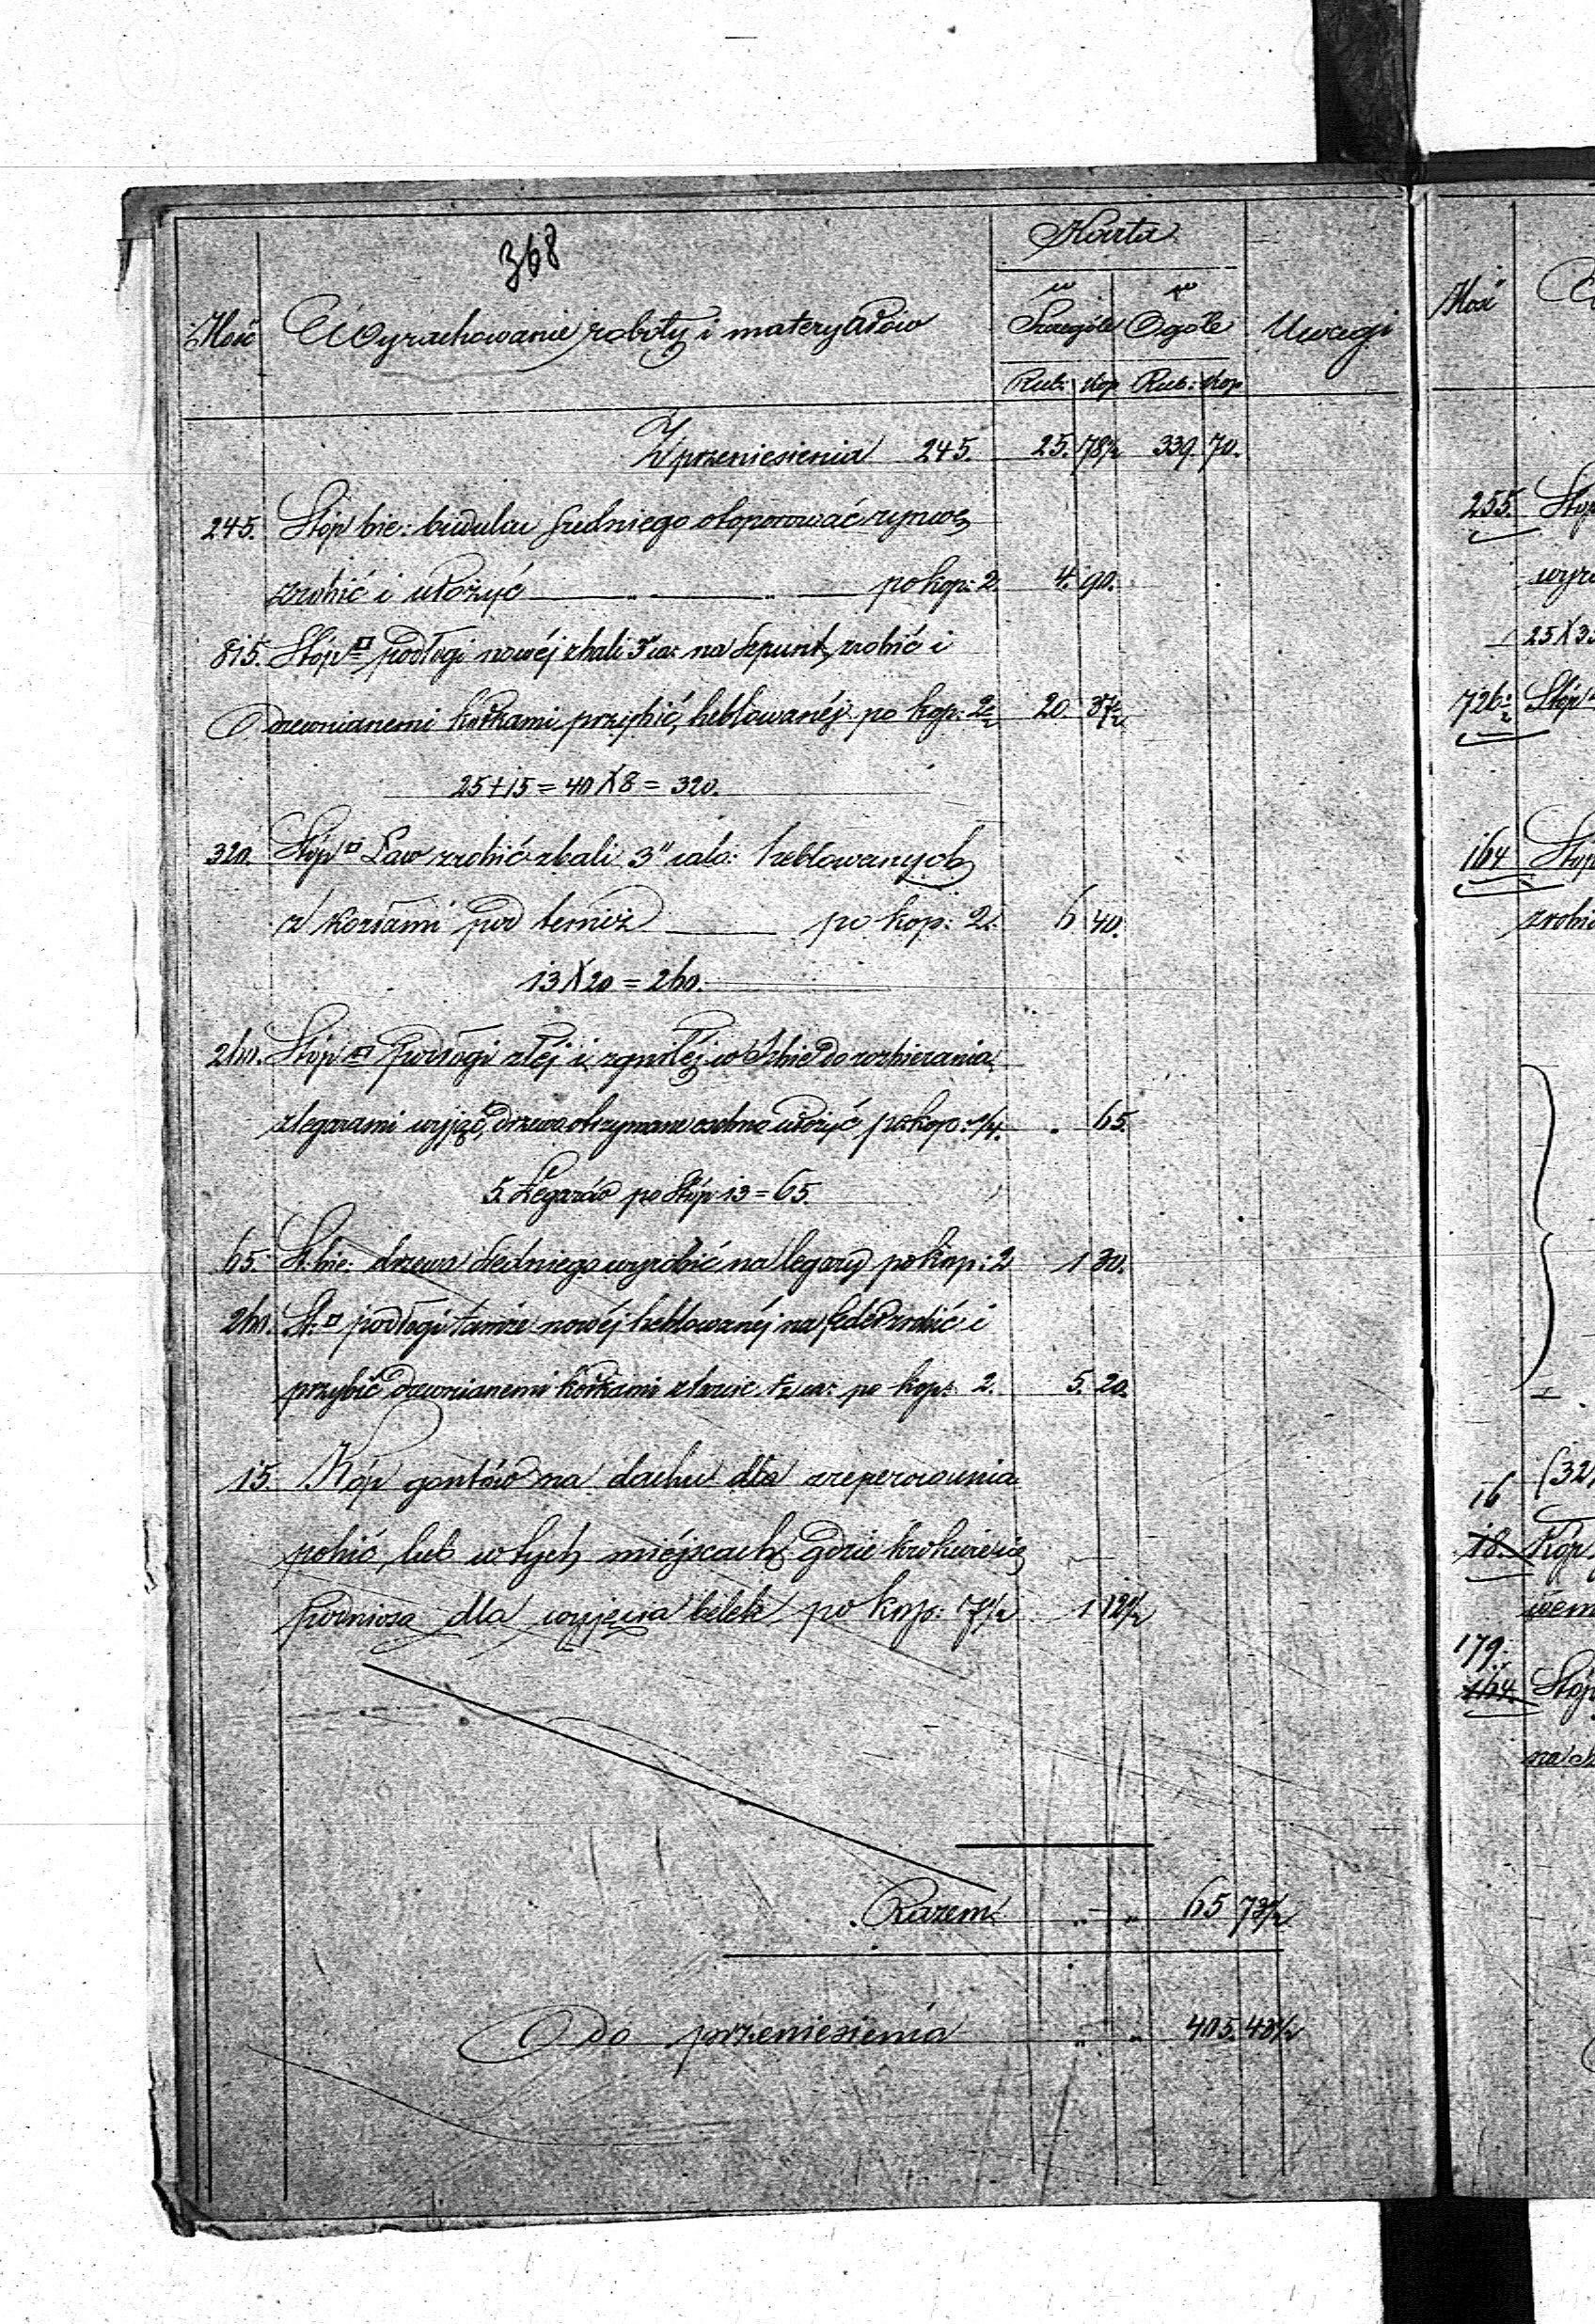 368
Ilość Wyrachowanie roboty i materyałów Koszta Uwagi
w Szczególe w Ogóle
Rub: Kop Rub: Kop
Z przeniesienia 245. 25. 78½ 339. 70.
245. Stóp bie: budulcu średniego otoporować rynwę
zrobić i ułożyć — „ — „ — po kop: 2 4. 90.
815. Stóp □ podłogi nowéj z bali 3" ca: na szpunt zrobić i
Drewnianemi kołkami przybić, heblowanéj po kop: 2½ 20. 37½
25+15=40X8=320.
320. Stóp □ Ław zrobić z bali 3" calo: heblowanych
z kozłami pod po kop: 2. 6 40.
13X20=260.
260. Stóp □ Podłogi złéj i zgniłéj w Izbie do rozbierania
z legarami wyjąć, drzewo otrzymane osobno ułożyć po kop: ¼. . 65.
5. Legarów po Stóp 13=65.
65. St. bie: drzewa średniego wyrobić na legary po kop: 2 1 30.
260. St. □ podłogi tamże nowéj heblowanéj na feder zrobić i
przybić drewnianemi kołkami z tarcic ca: po kop: 2. 5. 20.
15. Kóp gontów na dachu dla zreperowania
pobić lub w tych miéjscach gdzie krokwie się
podniosą dla wyjęcia belek po kop: 7½ 1 12½
Razem „ „ 65 73½
Do przeniesienia „ „ 405. 43½
Ilość
255. Stóp
25X3
726½ Stóp
164 Stóp
16 (32
18. Kóp
179.
164. Stóp